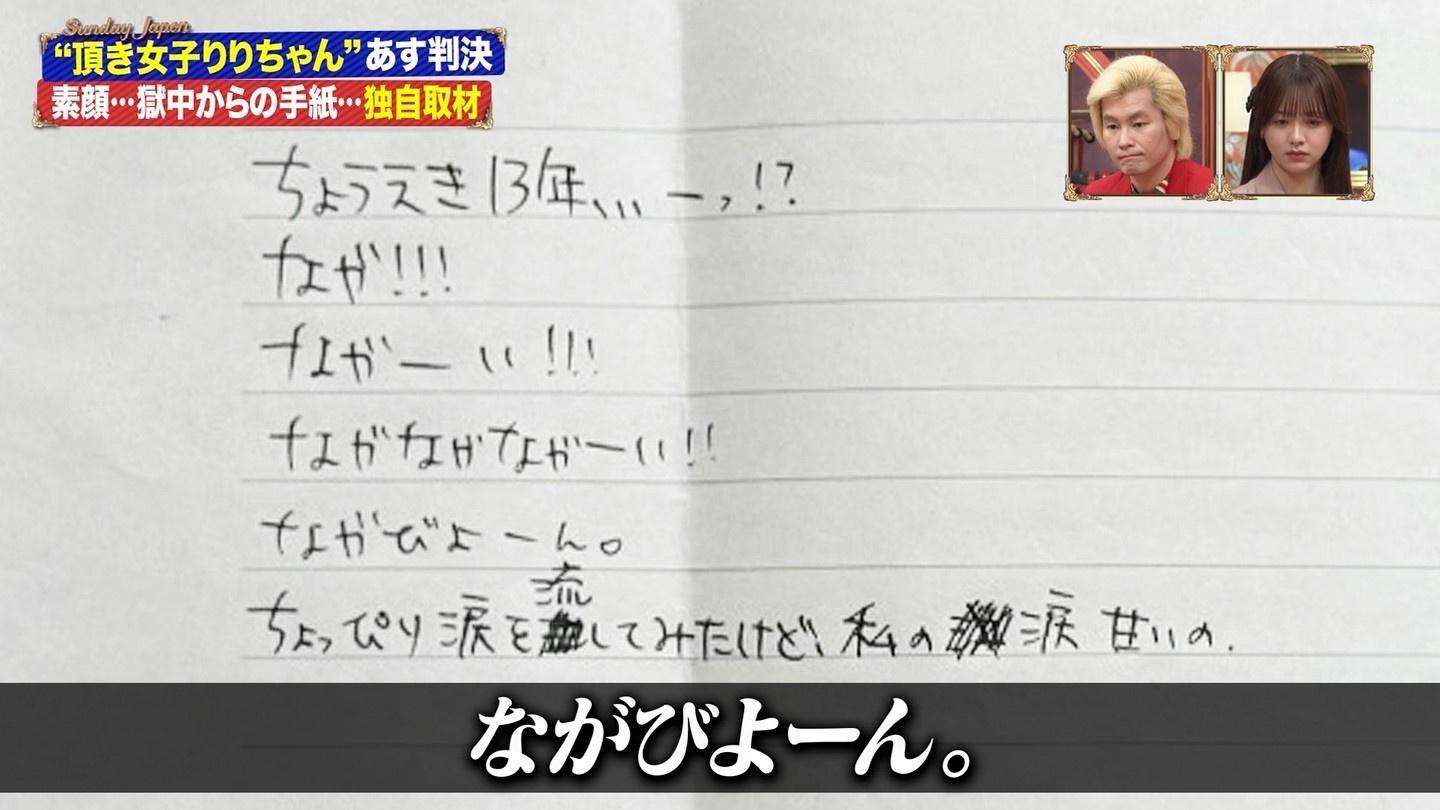 Sunday Japon
“頂き女子りりちゃん”あす判決
素顔…獄中からの手紙…独自取材
ちょうえき13年、、、ーっ!?
なが!!!
ながーい!!!
ながながながーい!!
ながびよーん。
ちょっぴり涙を流してみたけど、私の涙甘いの.
ながびよーん。